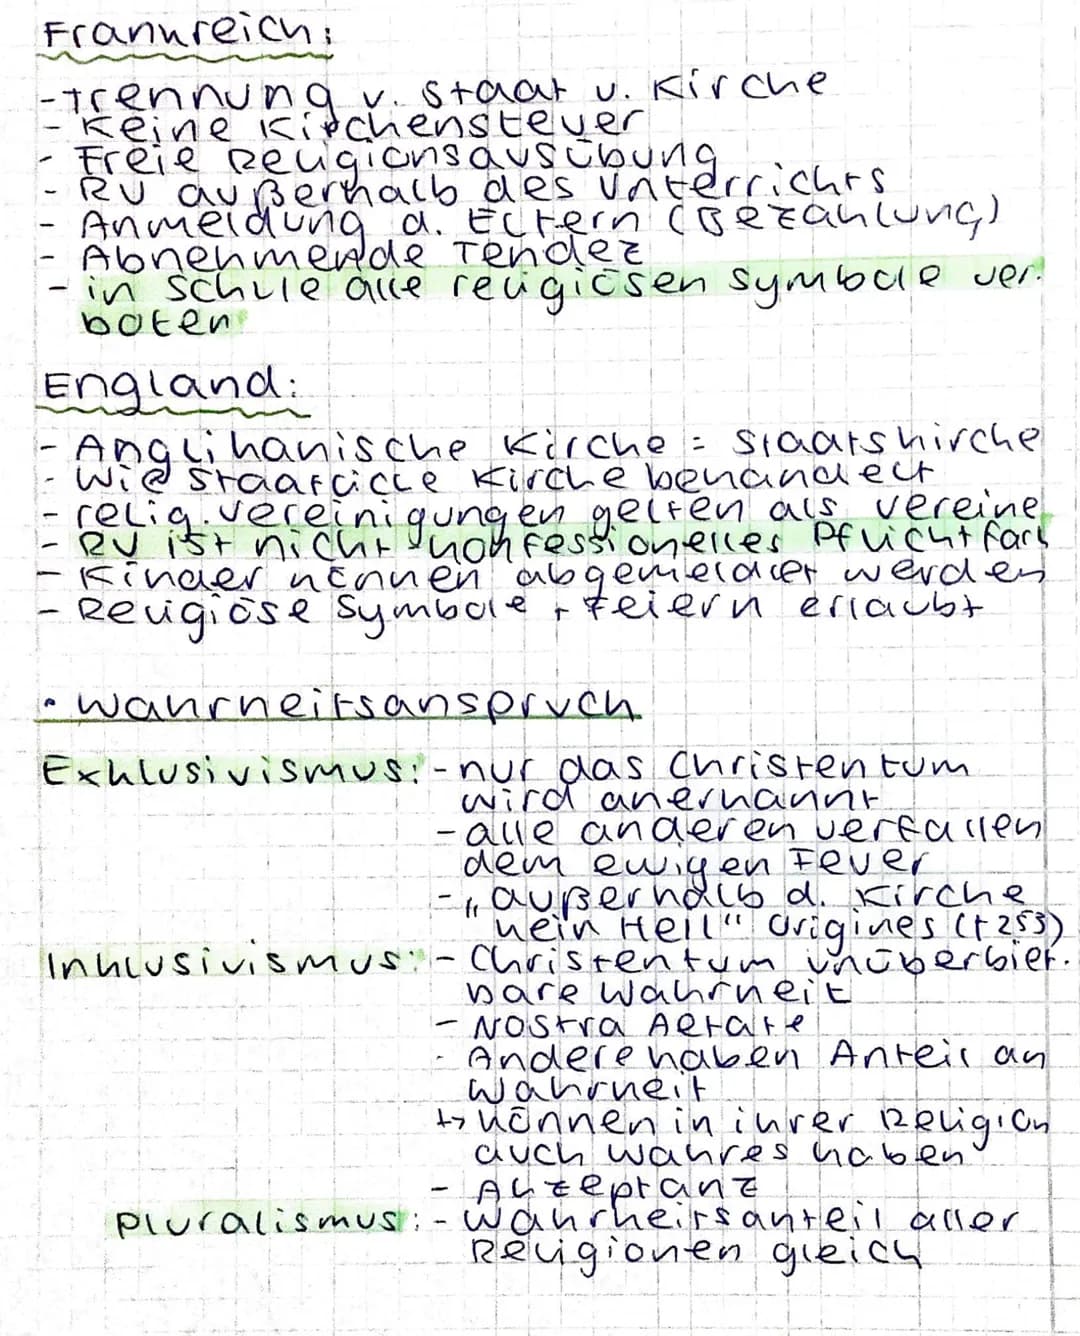 Frankreich:
- Trennung v. Staat u. Kirche
- Keine Kirchensteuer
- Freie Religionsausübung
- RU außerhalb des Unterrichts
- Anmeldung d. Eltern (Bezahlung)
- Abnehmende Tendez
- in Schule alle religiösen Symbole ver-
boten
England:
- Anglikanische Kirche = Staatskirche
- Wie staatliche Kirche behandelt
- relig. Vereinigungen gelten als Vereine
- RU ist nicht konfessionelles Pflichtfach
- Kinder können abgemeldet werden
- Religiöse Symbole + Feiern erlaubt
• Wahrheitsanspruch
Exklusivismus: - nur das Christentum
wird anerkannt
- alle anderen verfallen
dem ewigen Feuer
- „außerhalb d. Kirche
kein Heil" Origines († 253)
Inklusivismus: - Christentum unüberbiet-
bare Wahrheit
- Nostra Aetate
- Andere haben Anteil an
Wahrheit
↳ können in ihrer Religion
auch wahres haben
- Akzeptanz
Pluralismus: - Wahrheitsanteil aller
Religionen gleich